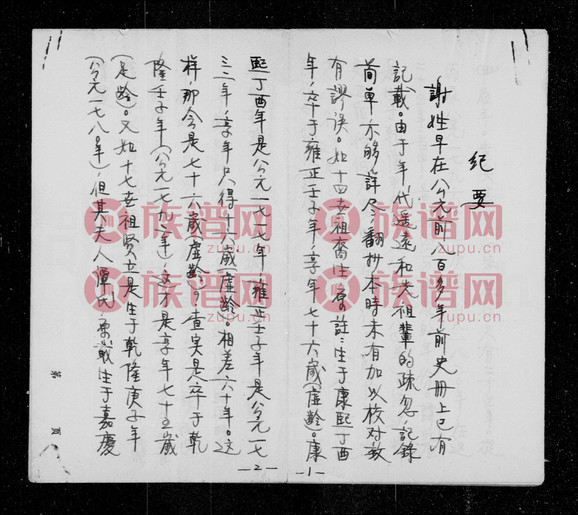 纪要
謝姓早在公元前八百多年前史册上已有
記載。由于年代遥遠和先祖輩的疏忽記錄
简单不够詳尽,翻抄本時未有加以核对致
有謬误。如十四世祖裔生存註:生于康熙丁酉
年,卒于雍正壬子年,享年七十六歲(虚齡)。康
-1-
熙丁酉年是公元一七一七年,雍正壬子年是公元一七
三二年,享年只得十六歲(虚齡)。相差六十年。这
样,那会是七十六歲(虚齡)?查实是卒于乾
隆壬子年(公元一七九二年)这才是享年七十五歲
(足齡)。又如十七世祖贤立是生于乾隆庚子年
(公元一七八〇年),但其夫人譚氏
生于嘉慶
-2-
第 頁
族谱网
zupu.cn
族谱网
zupu.cn
族谱网
zupu.cn
族谱网
zupu.cn